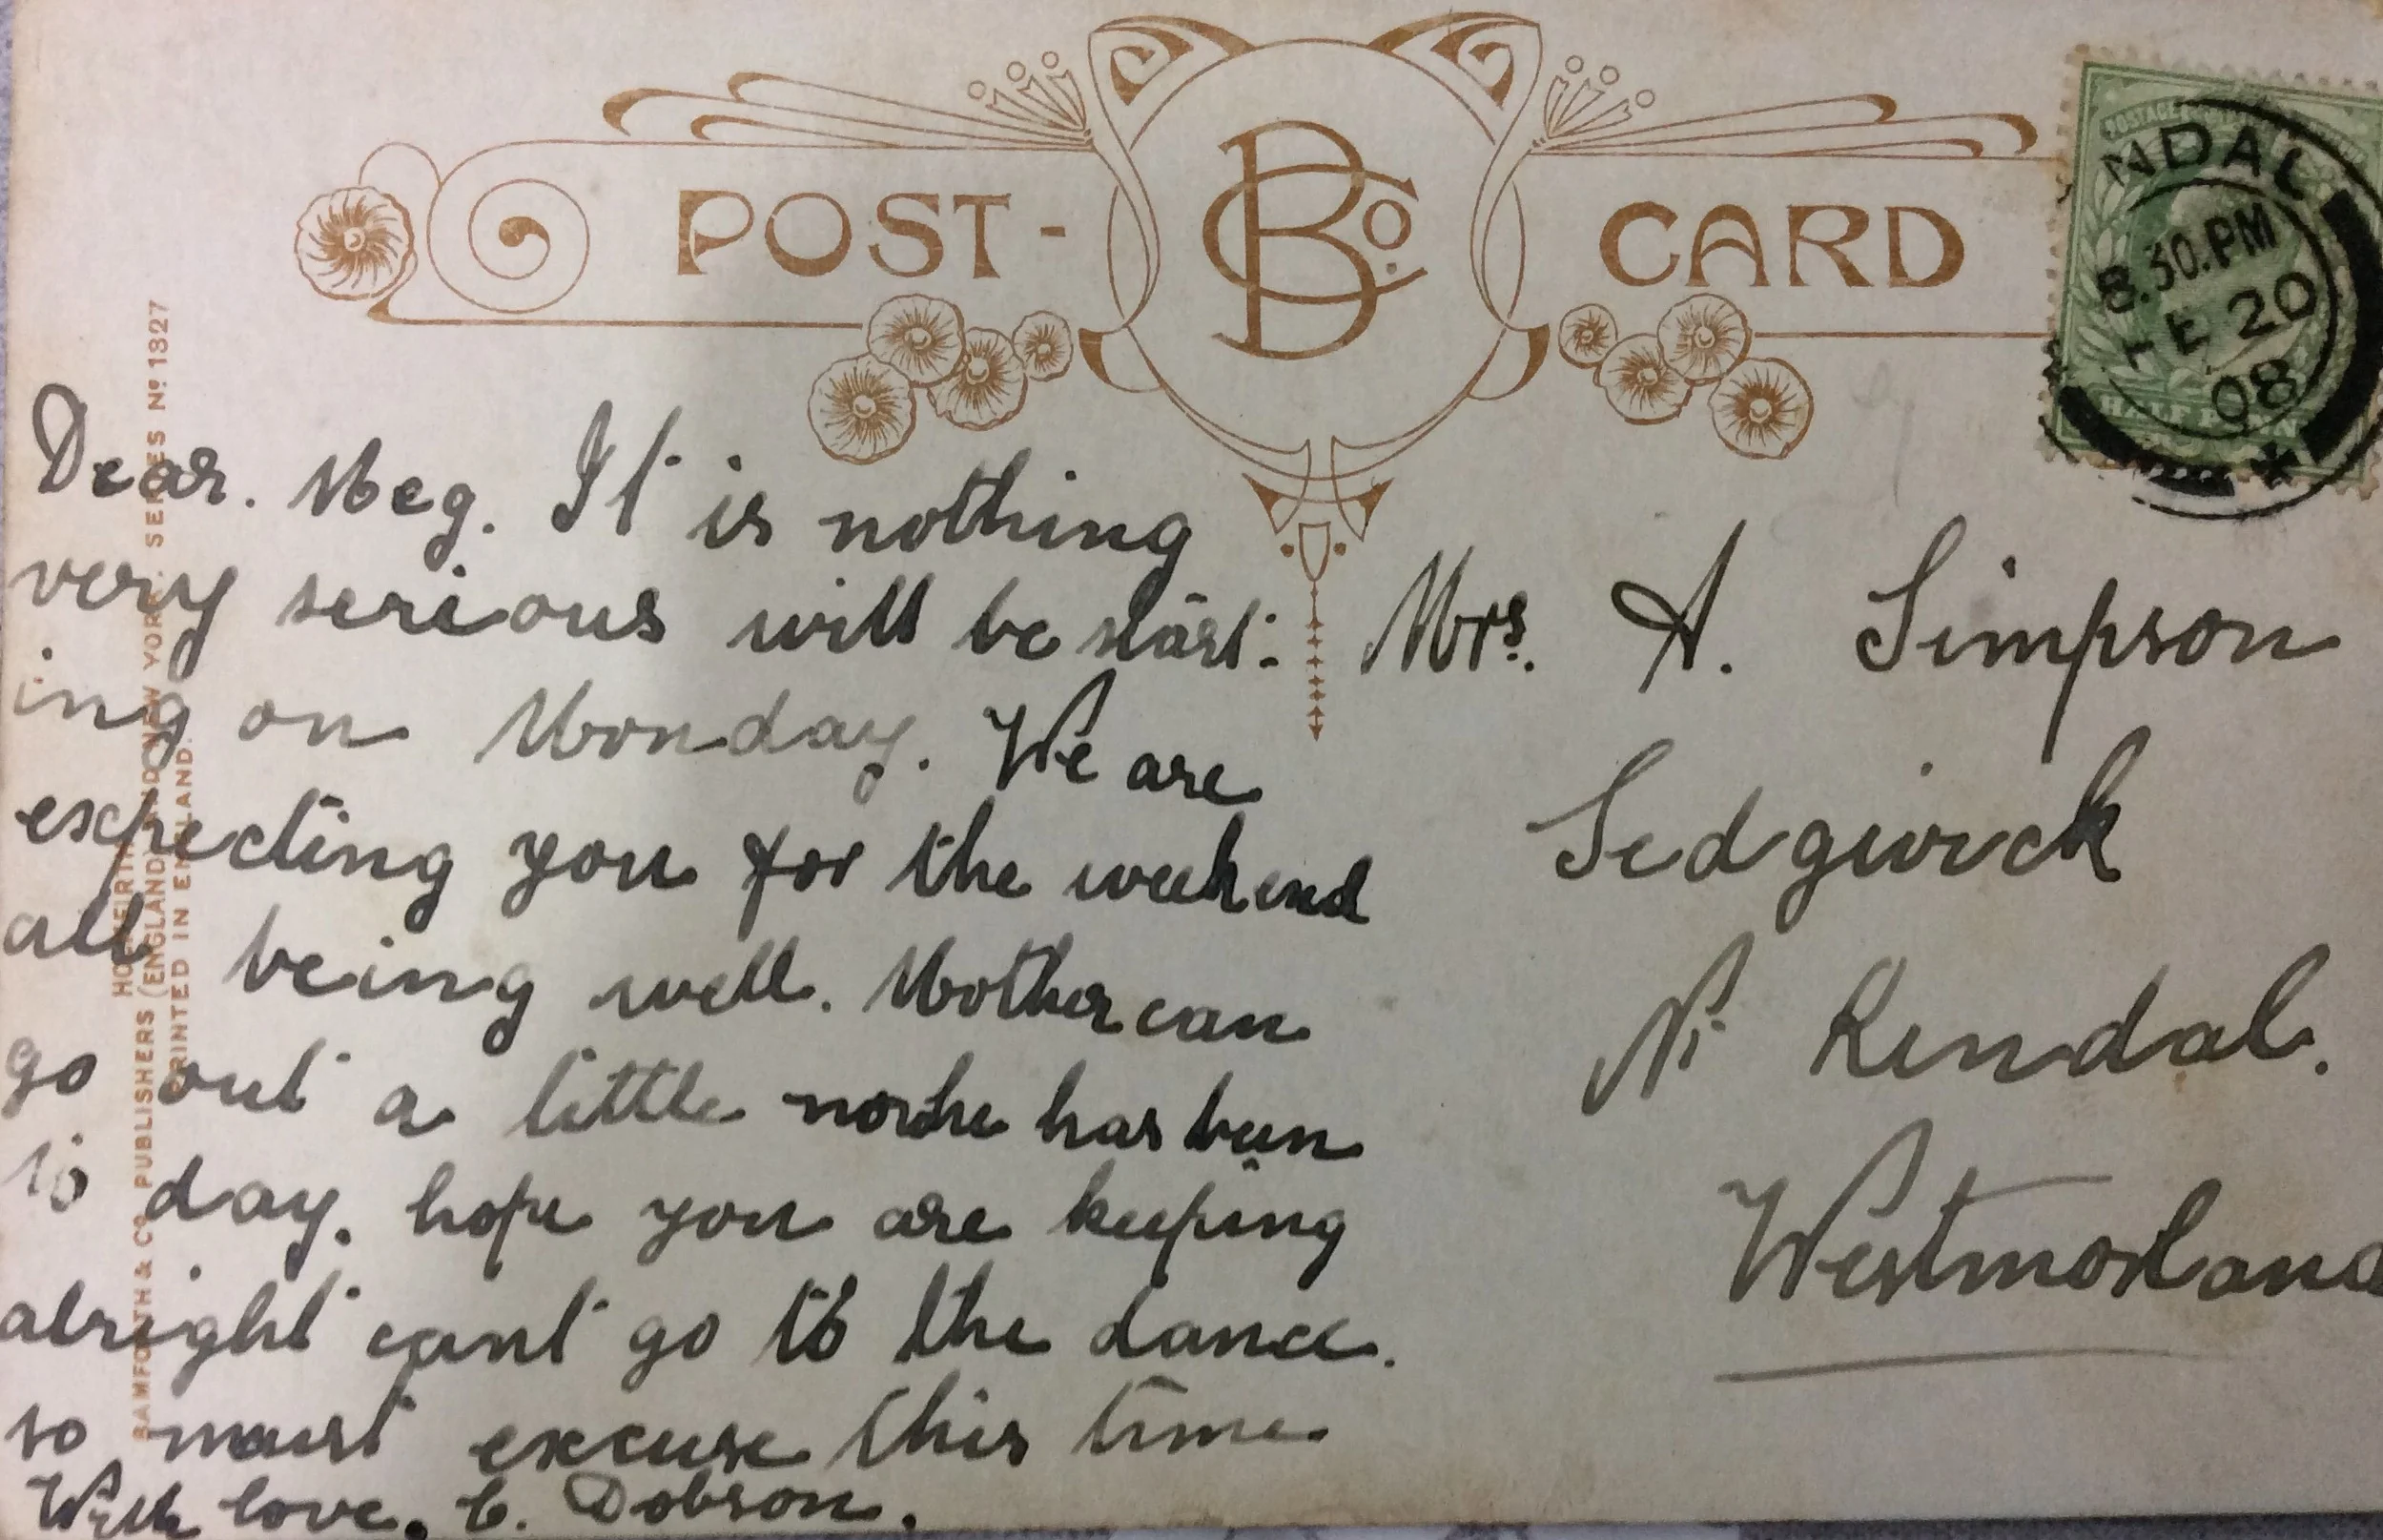 POST-CARD
B Co.
NDAL
8.30.PM
FE 20
08
POSTAGE
HALF PENNY
BAMFORTH & CO. PUBLISHERS (ENGLAND) AND NEW YORK. SERIES No. 1327
HOLMFIRTH
PRINTED IN ENGLAND.
Dear. Meg. It is nothing
very serious will be start:
ing on Monday. We are
expecting you for the weekend
all being well. Mother can
go out a little now he has been
to day. hope you are keeping
alright cant go to the dance.
so must excuse this time
With love. C. Dobson.
Mrs. A. Simpson
Sedgwick
Nr. Kendal.
Westmorland